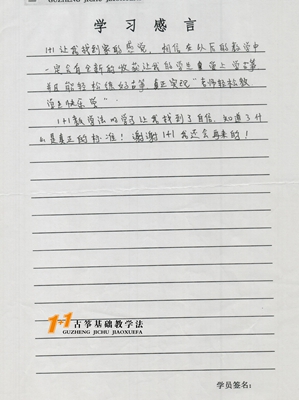 GUZHENG JICHU JIAOXUEFA
学习感言
1+1让我找到家的感觉，相信在以后的教学中
一定会有全新的收获让我的学生重爱上学古筝
都能轻松练好古筝真正实现“老师轻松教
学生快乐学”。
1+1教学法的学习让我找到了自信，知道了什
么是真正的标准！谢谢1+1我还会再来的！
1+1古筝基础教学法
GUZHENG JICHU JIAOXUEFA
学员签名：